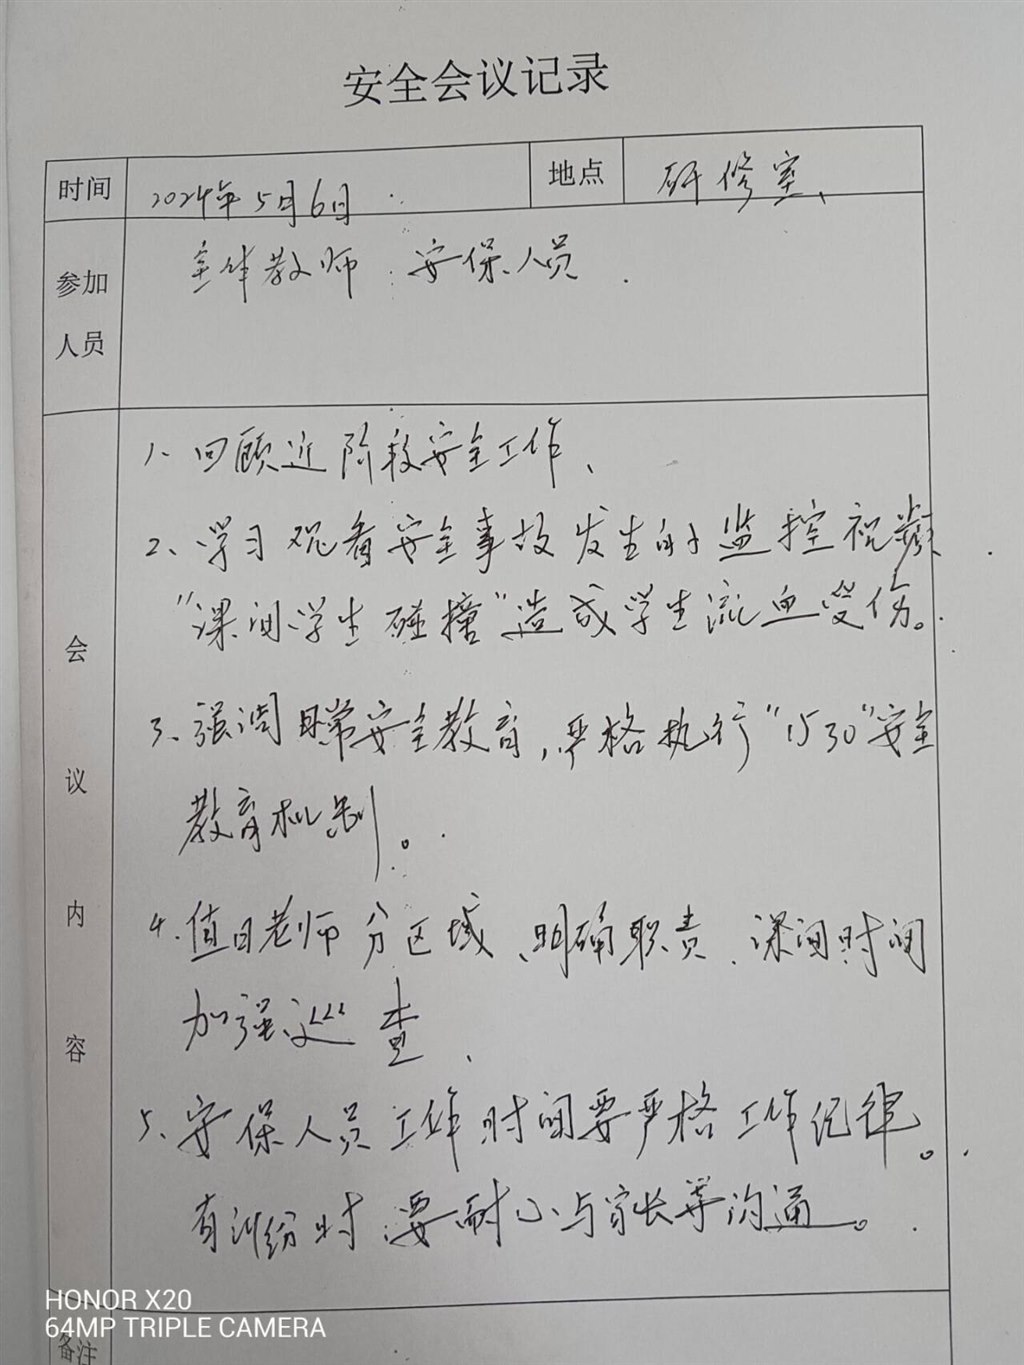 安全会议记录
时间 2024年5月6日 地点 研修室、
参加人员 全体教师 安保人员.
会议内容
1、回顾近阶段安全工作、
2、学习观看安全事故发生的监控视频.
"课间学生碰撞"造成学生流血受伤。
3、强调日常安全教育,严格执行"1530"安全
教育机制。
4.值日老师分区域、明确职责、课间时间
加强巡查、
5、安保人员工作时间要严格工作纪律。
有纠纷时要耐心与家长等沟通。
备注
HONOR X20
64MP TRIPLE CAMERA